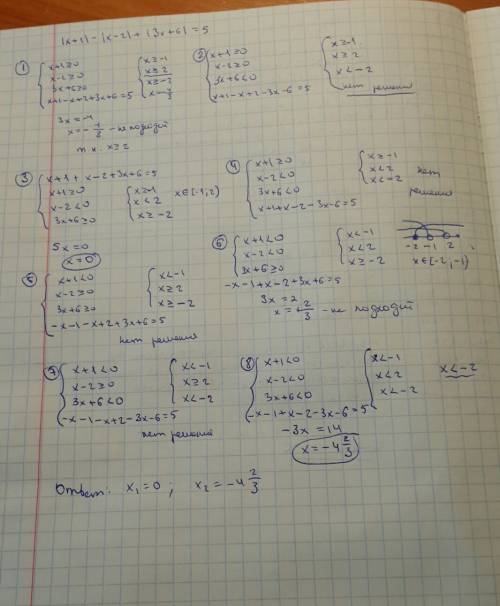 |x+1| - |x-2| + |3x+6| = 5
① { x+1≥0
x-2≥0
3x+6≥0
x+1-x+2+3x+6=5
{ x≥-1
x≥2
x≥-2
3x=-4
x=-4/3 - не подходит
т.к. x≥2
② { x+1≥0
x-2≥0
3x+6<0
x+1-x+2-3x-6=5
{ x≥-1
x≥2
x<-2
нет решения
③ { x+1+x-2+3x+6=5
x+1≥0
x-2<0
3x+6≥0
{ x≥-1
x<2
x≥-2
x∈[-1,2)
5x=0
x=0
④ { x+1≥0
x-2<0
3x+6<0
x+1+x-2-3x-6=5
{ x≥-1
x<2
x<-2
нет
решения
⑤ { x+1<0
x-2≥0
3x+6≥0
-x-1-x+2+3x+6=5
{ x<-1
x≥2
x≥-2
нет решения
⑥ { x+1<0
x-2<0
3x+6≥0
-x-1+x-2+3x+6=5
{ x<-1
x<2
x≥-2
-2 -1 2
x∈[-2,-1)
3x=2
x=2/3 - не подходит
⑦ { x+1<0
x-2≥0
3x+6<0
-x-1-x+2-3x-6=5
{ x<-1
x≥2
x<-2
нет решения
⑧ { x+1<0
x-2<0
3x+6<0
-x-1+x-2-3x-6=5
{ x<-1
x<2
x<-2
x<-2
-3x=14
x=-4 2/3
Ответ: x₁=0; x₂=-4 2/3